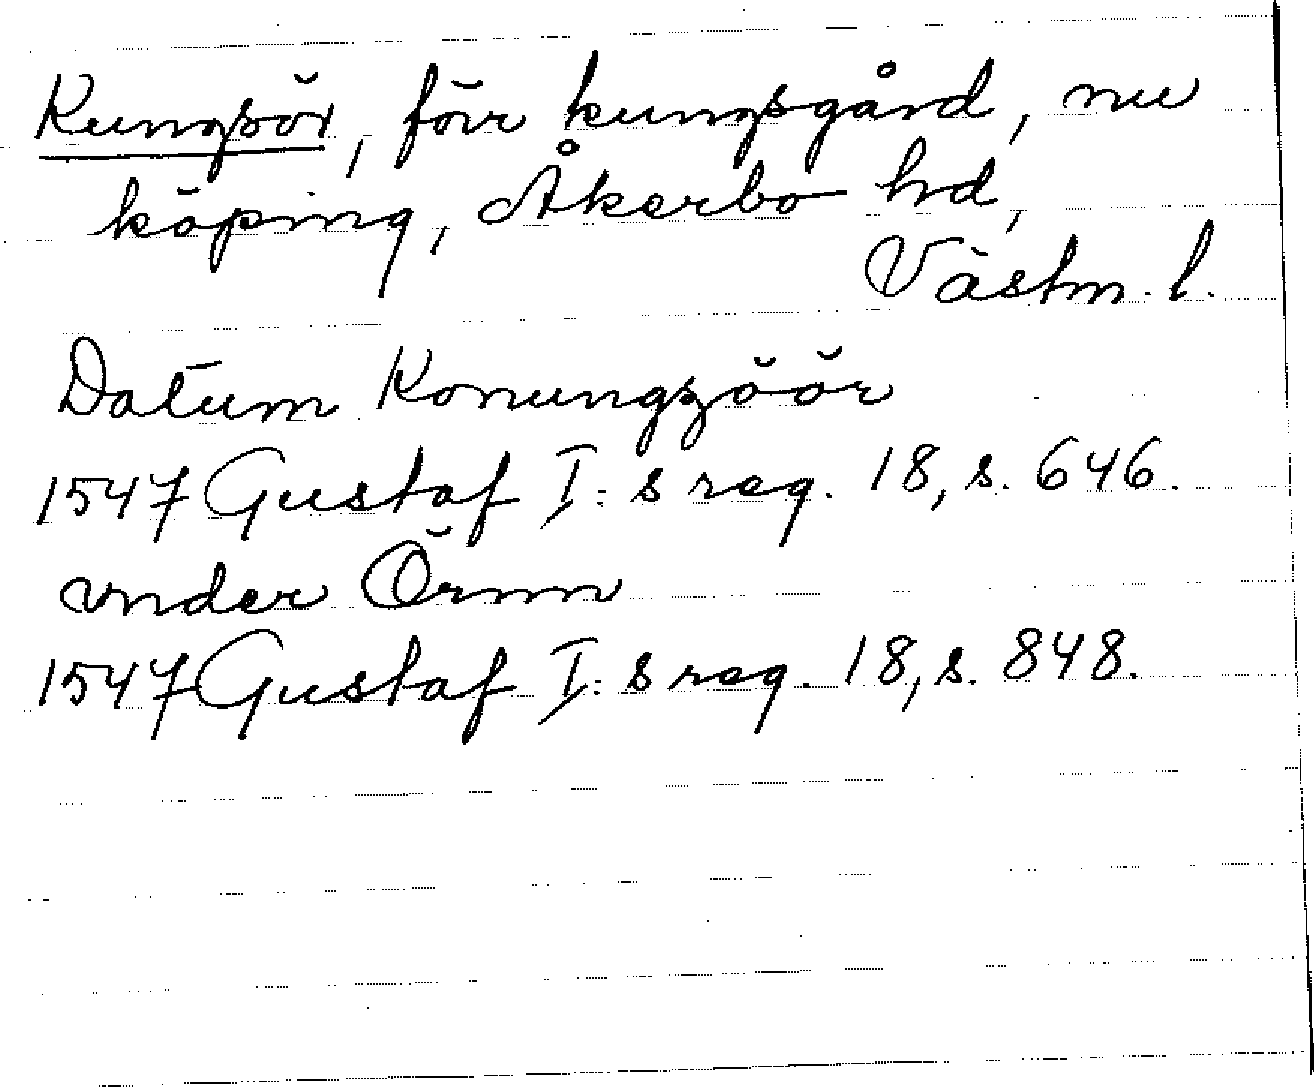 Kungsör, förr kungsgård, nu
köping, Åkerbo hd,
Västm. l.
Datum Konungzöör
1547 Gustaf I:s reg. 18, s. 646.
vnder Örenn
1547 Gustaf I:s reg. 18, s. 848.